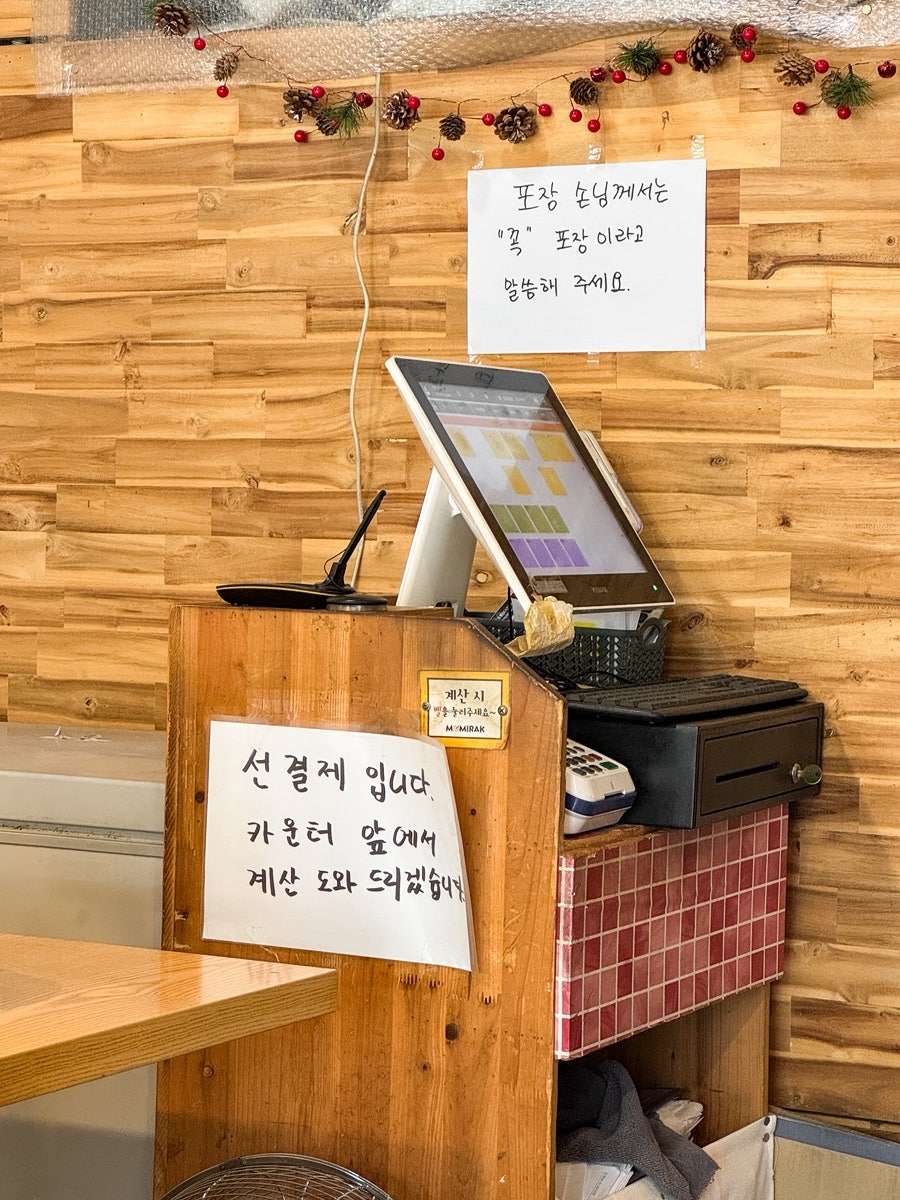 포장 손님께서는
"꼭" 포장이라고
말씀해 주세요.
계산 시
벨을 눌러주세요~
MOMIRAK
선결제 입니다.
카운터 앞에서
계산 도와 드리겠습니다.